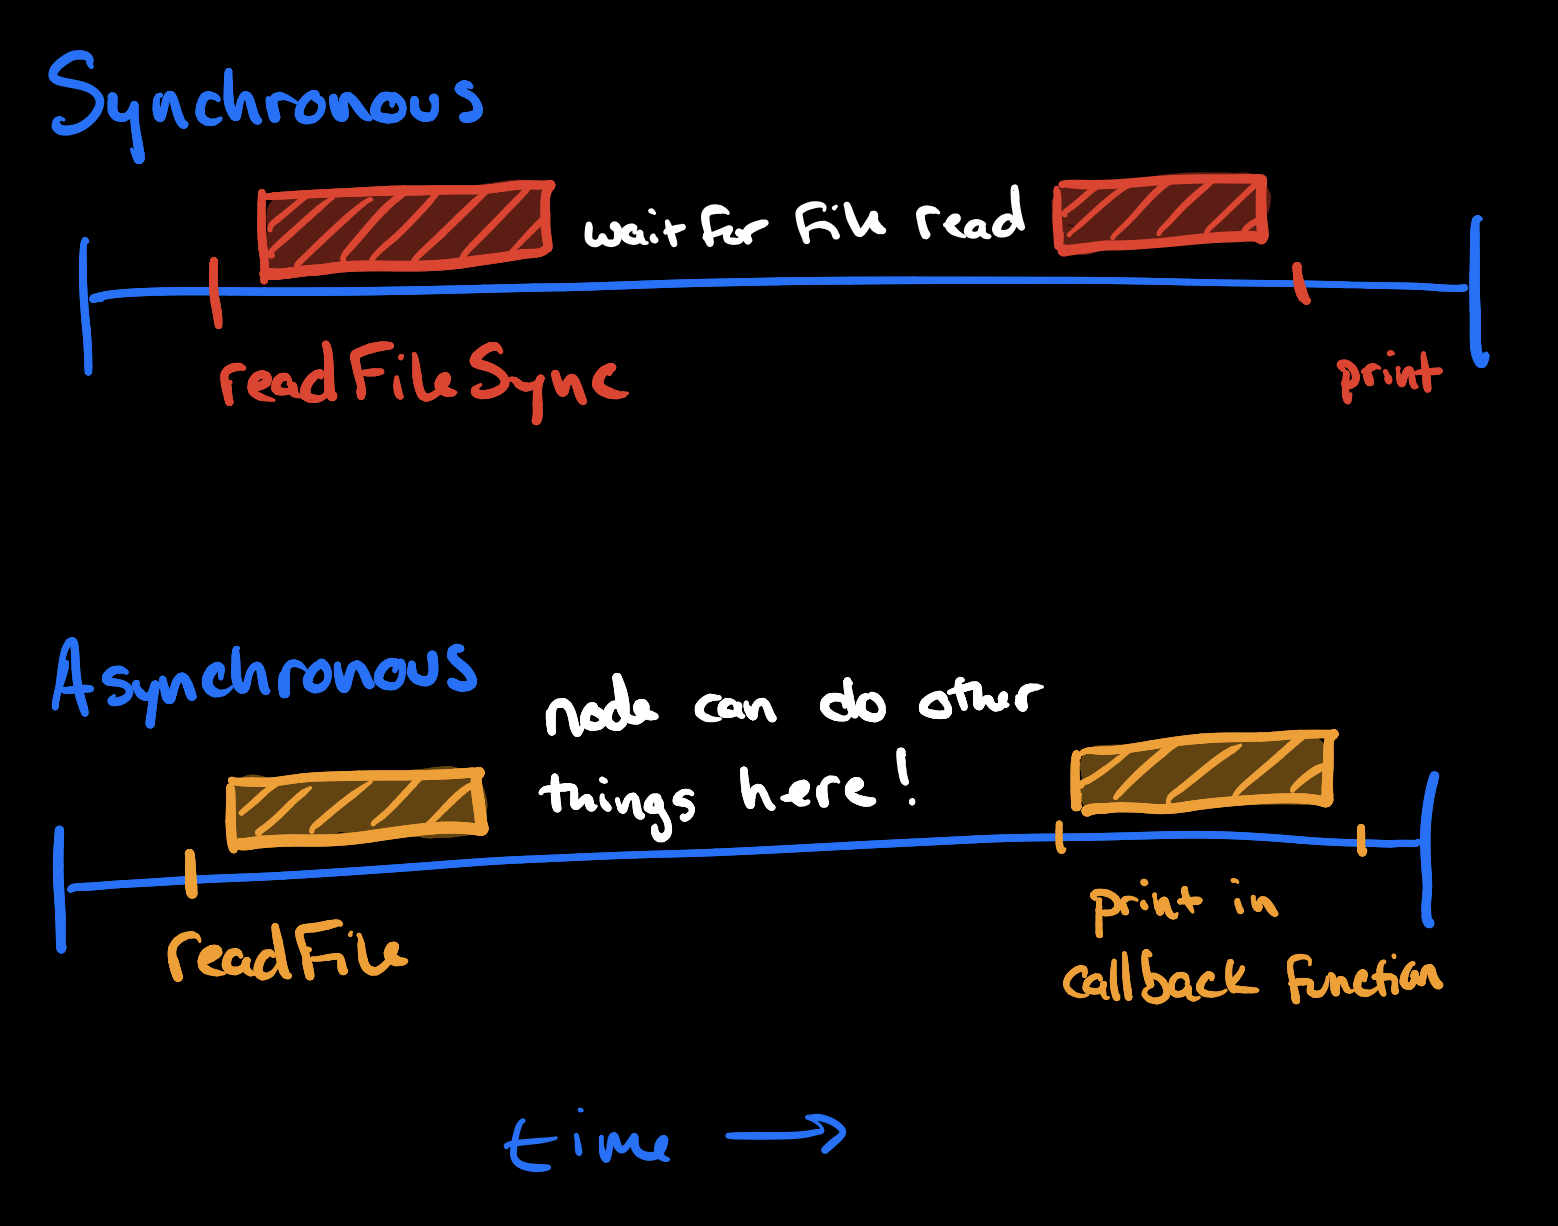 Synchronous
wait for File read
readFileSync
print
Asynchronous
node can do other
things here!
readFile
print in
callback function
time →